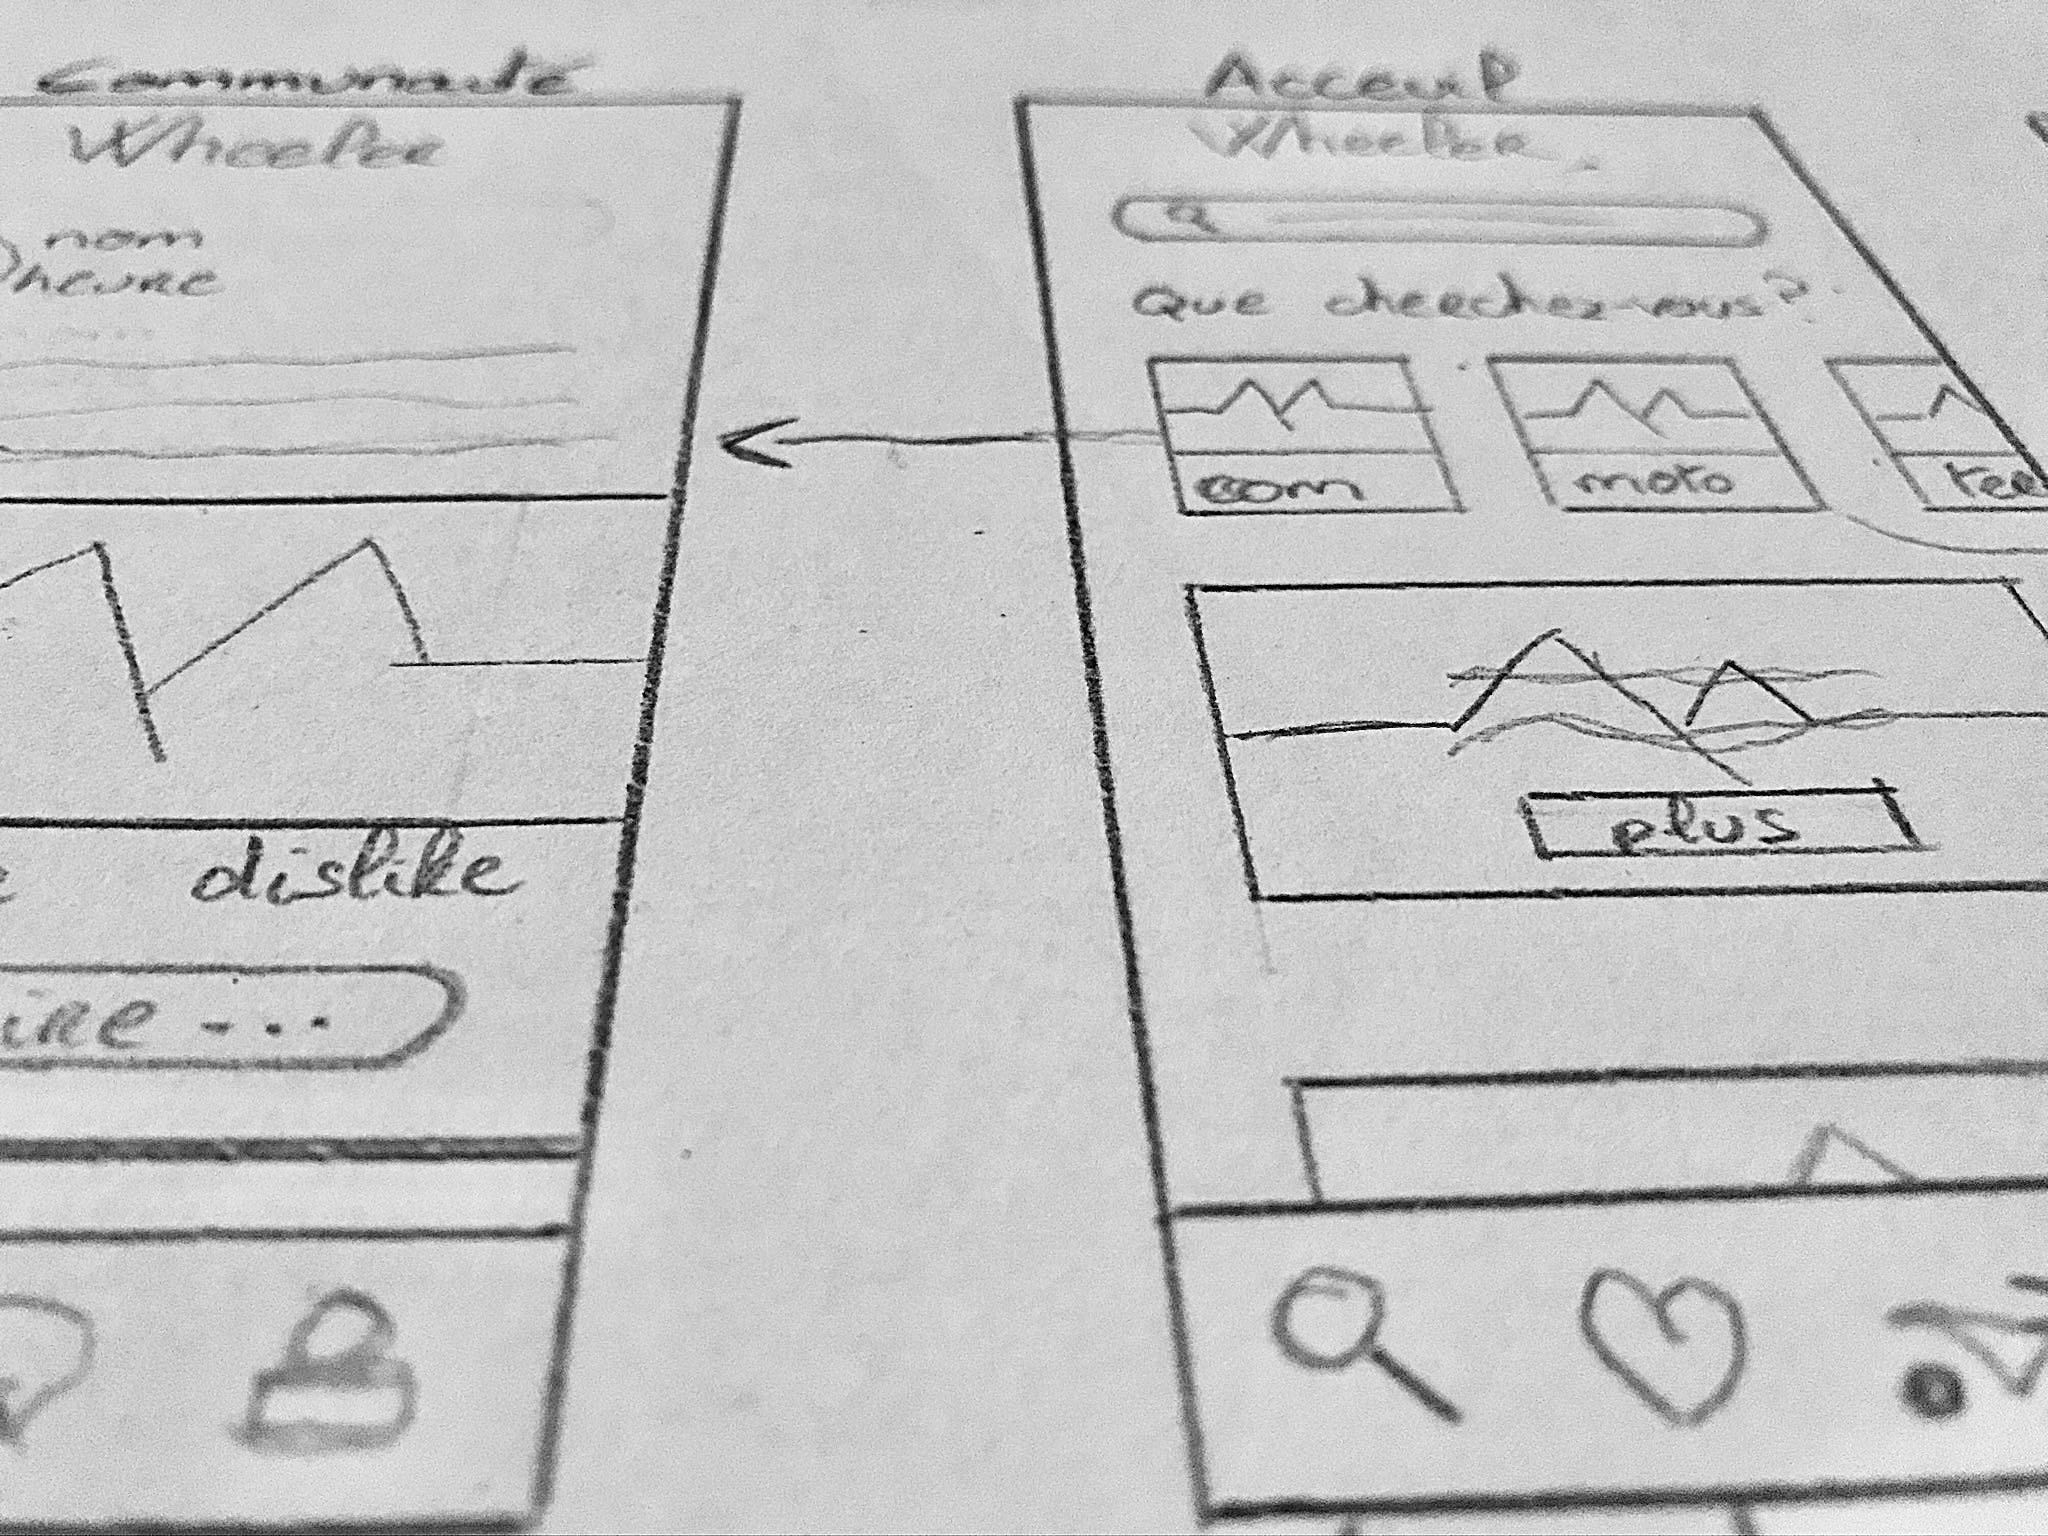 Communauté
Wheeler
nom
heure
dislike
ire ...
Acceuil
Wheeler
Que cherchez-vous?
com
moto
plus